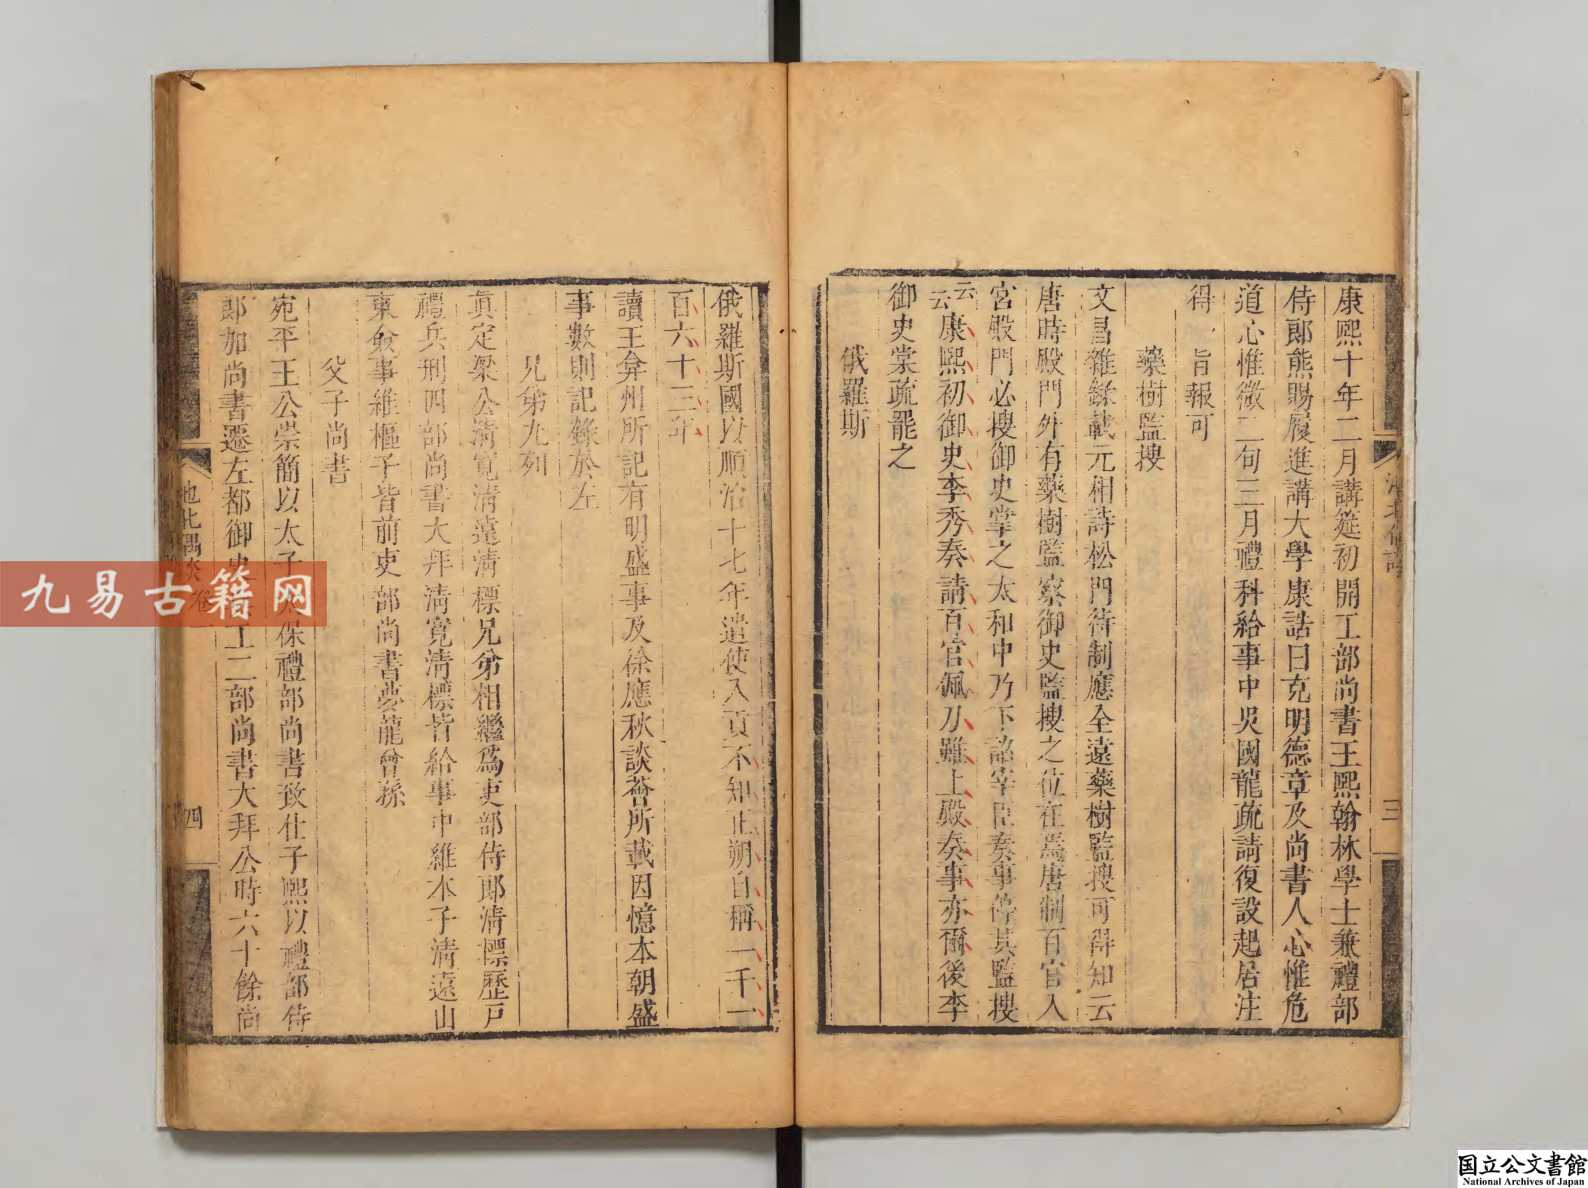 康熙十年二月講筵初開工部尚書王熙翰林學士兼禮部
侍郎熊賜履進講大學康誥曰克明德章及尚書人心惟危
道心惟微二句三月禮科給事中吳國龍疏請復設起居注
得 旨報可
藥樹監搜
文昌雜錄載元相詩松門待制應全遠藥樹監搜可得知云
唐時殿門外有藥樹監察御史監搜之位在焉唐制百官入
宮殿門必搜御史掌之太和中乃下詔宰臣奏事停其監搜
云云康熙初御史李秀奏請百官佩刀雖上殿奏事亦爾後李
御史棠疏罷之
俄羅斯
三
俄羅斯國以順治十七年遣使入貢不知正朔自稱一千一
百六十三年
讀王弇州所記有明盛事及徐應秋談薈所載因憶本朝盛
事數則記錄於左
兄弟九列
真定梁公清寬清遠清標兄弟相繼為吏部侍郎清標歷戶
禮兵刑四部尚書大拜清寬清標皆給事中維本子清遠山
東僉事維樞子皆前吏部尚書夢龍曾孫
父子尚書
宛平王公崇簡以太子太保禮部尚書致仕子熙以禮部侍
郎加尚書遷左都御史工二部尚書大拜公時六十餘尚
池北偶談 卷一
四
九易古籍网
国立公文書館
National Archives of Japan